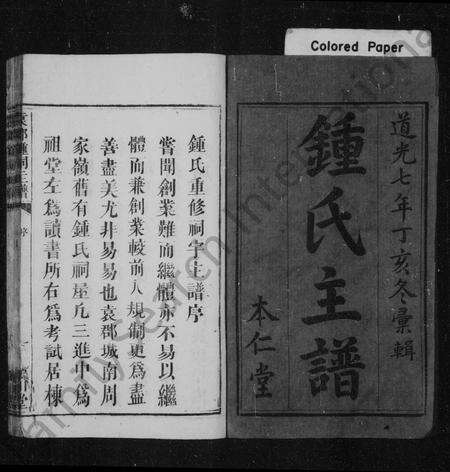 Colored Paper
道光七年丁亥冬彙輯
鍾氏主譜
本仁堂
鍾氏重修祠宇主譜序
嘗聞創業難而繼體亦不易以繼
體而兼創業較前人規制更為盡
善盡美尤非易易也袁郡城南周
家嶺舊有鍾氏祠屋凡三進中為
祖堂左為讀書所右為考試居棟
序
FamilySearch International